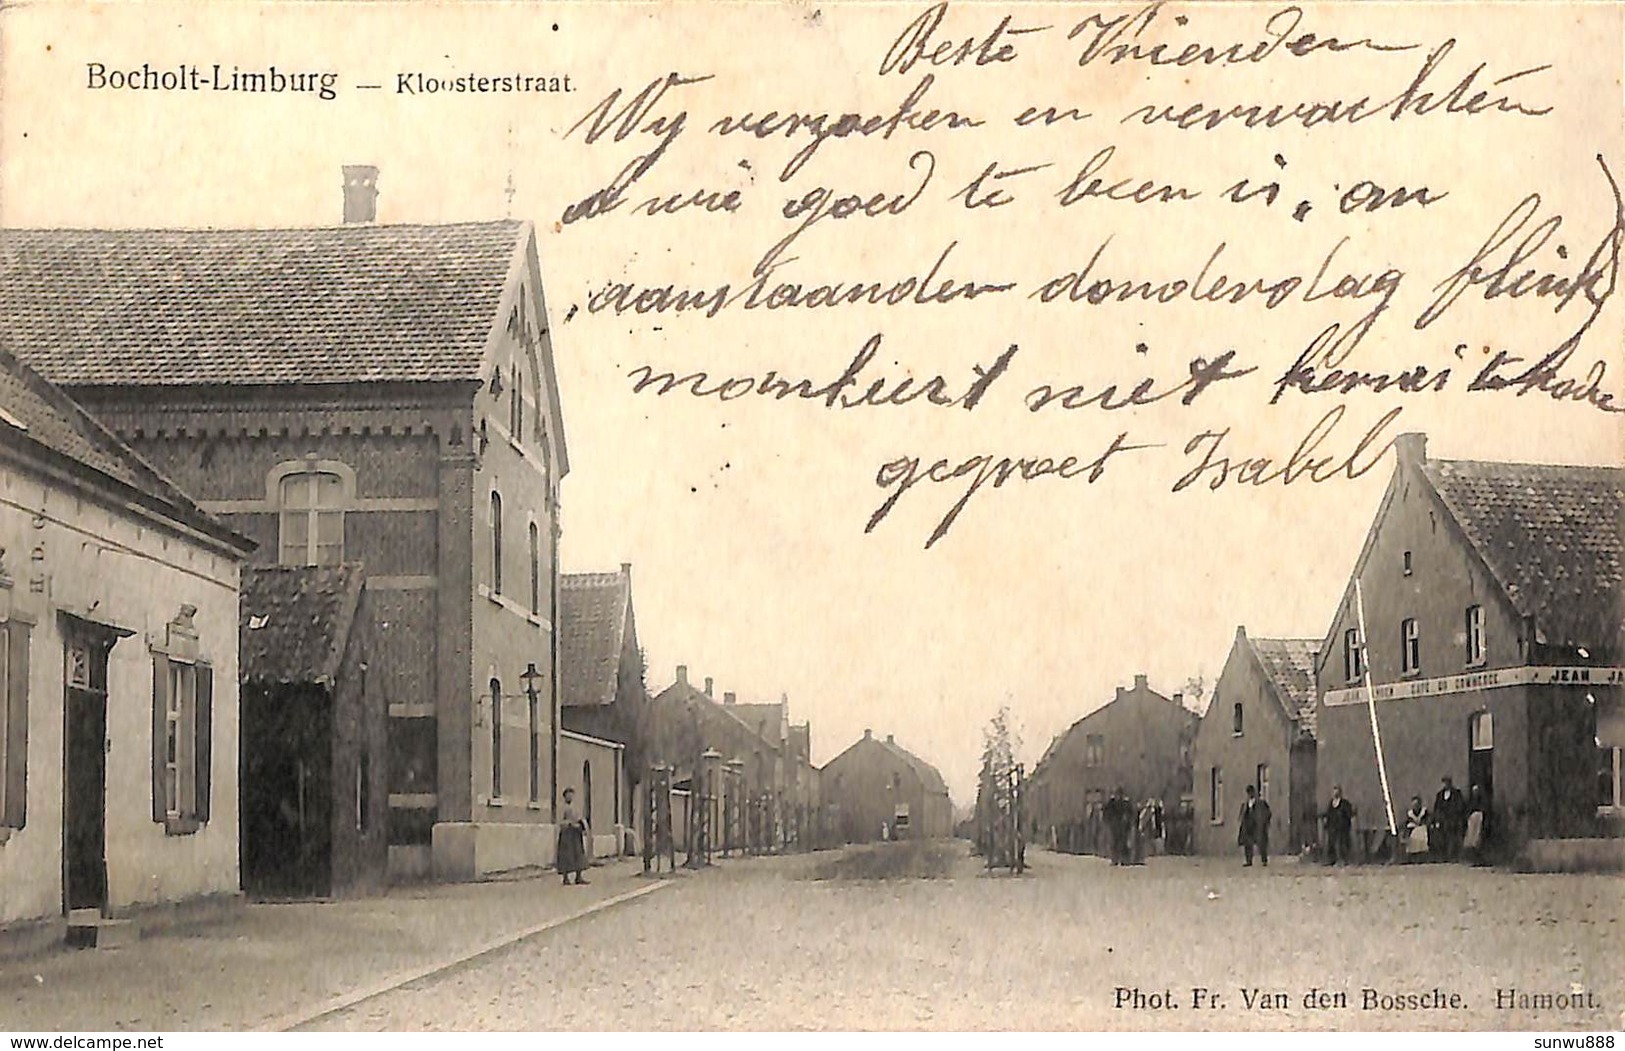 Bocholt-Limburg — Kloosterstraat.
Beste Vrienden
Wy verzoeken en verwachten
wie goed te been is, om
aanstaanden donderdag flink
niet te
gegroet Isabel
H. D. G.
CAFE DU COMMERCE
JEAN JA
Phot. Fr. Van den Bossche. Hamont.
delcampe.net
sunwu888